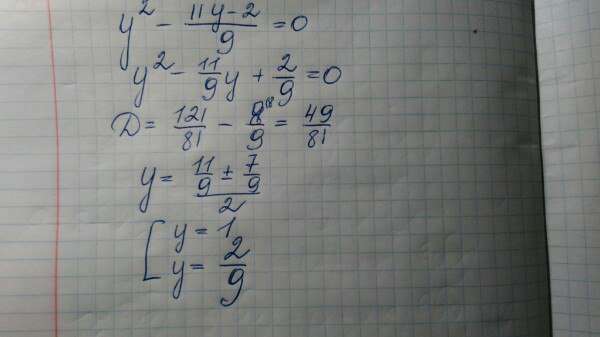 y² - (11y-2)/9 = 0
y² - 11/9 y + 2/9 = 0
D = 121/81 - 8/9 = 49/81
y = (11/9 ± 7/9)/2
[ y = 1
y = 2/9